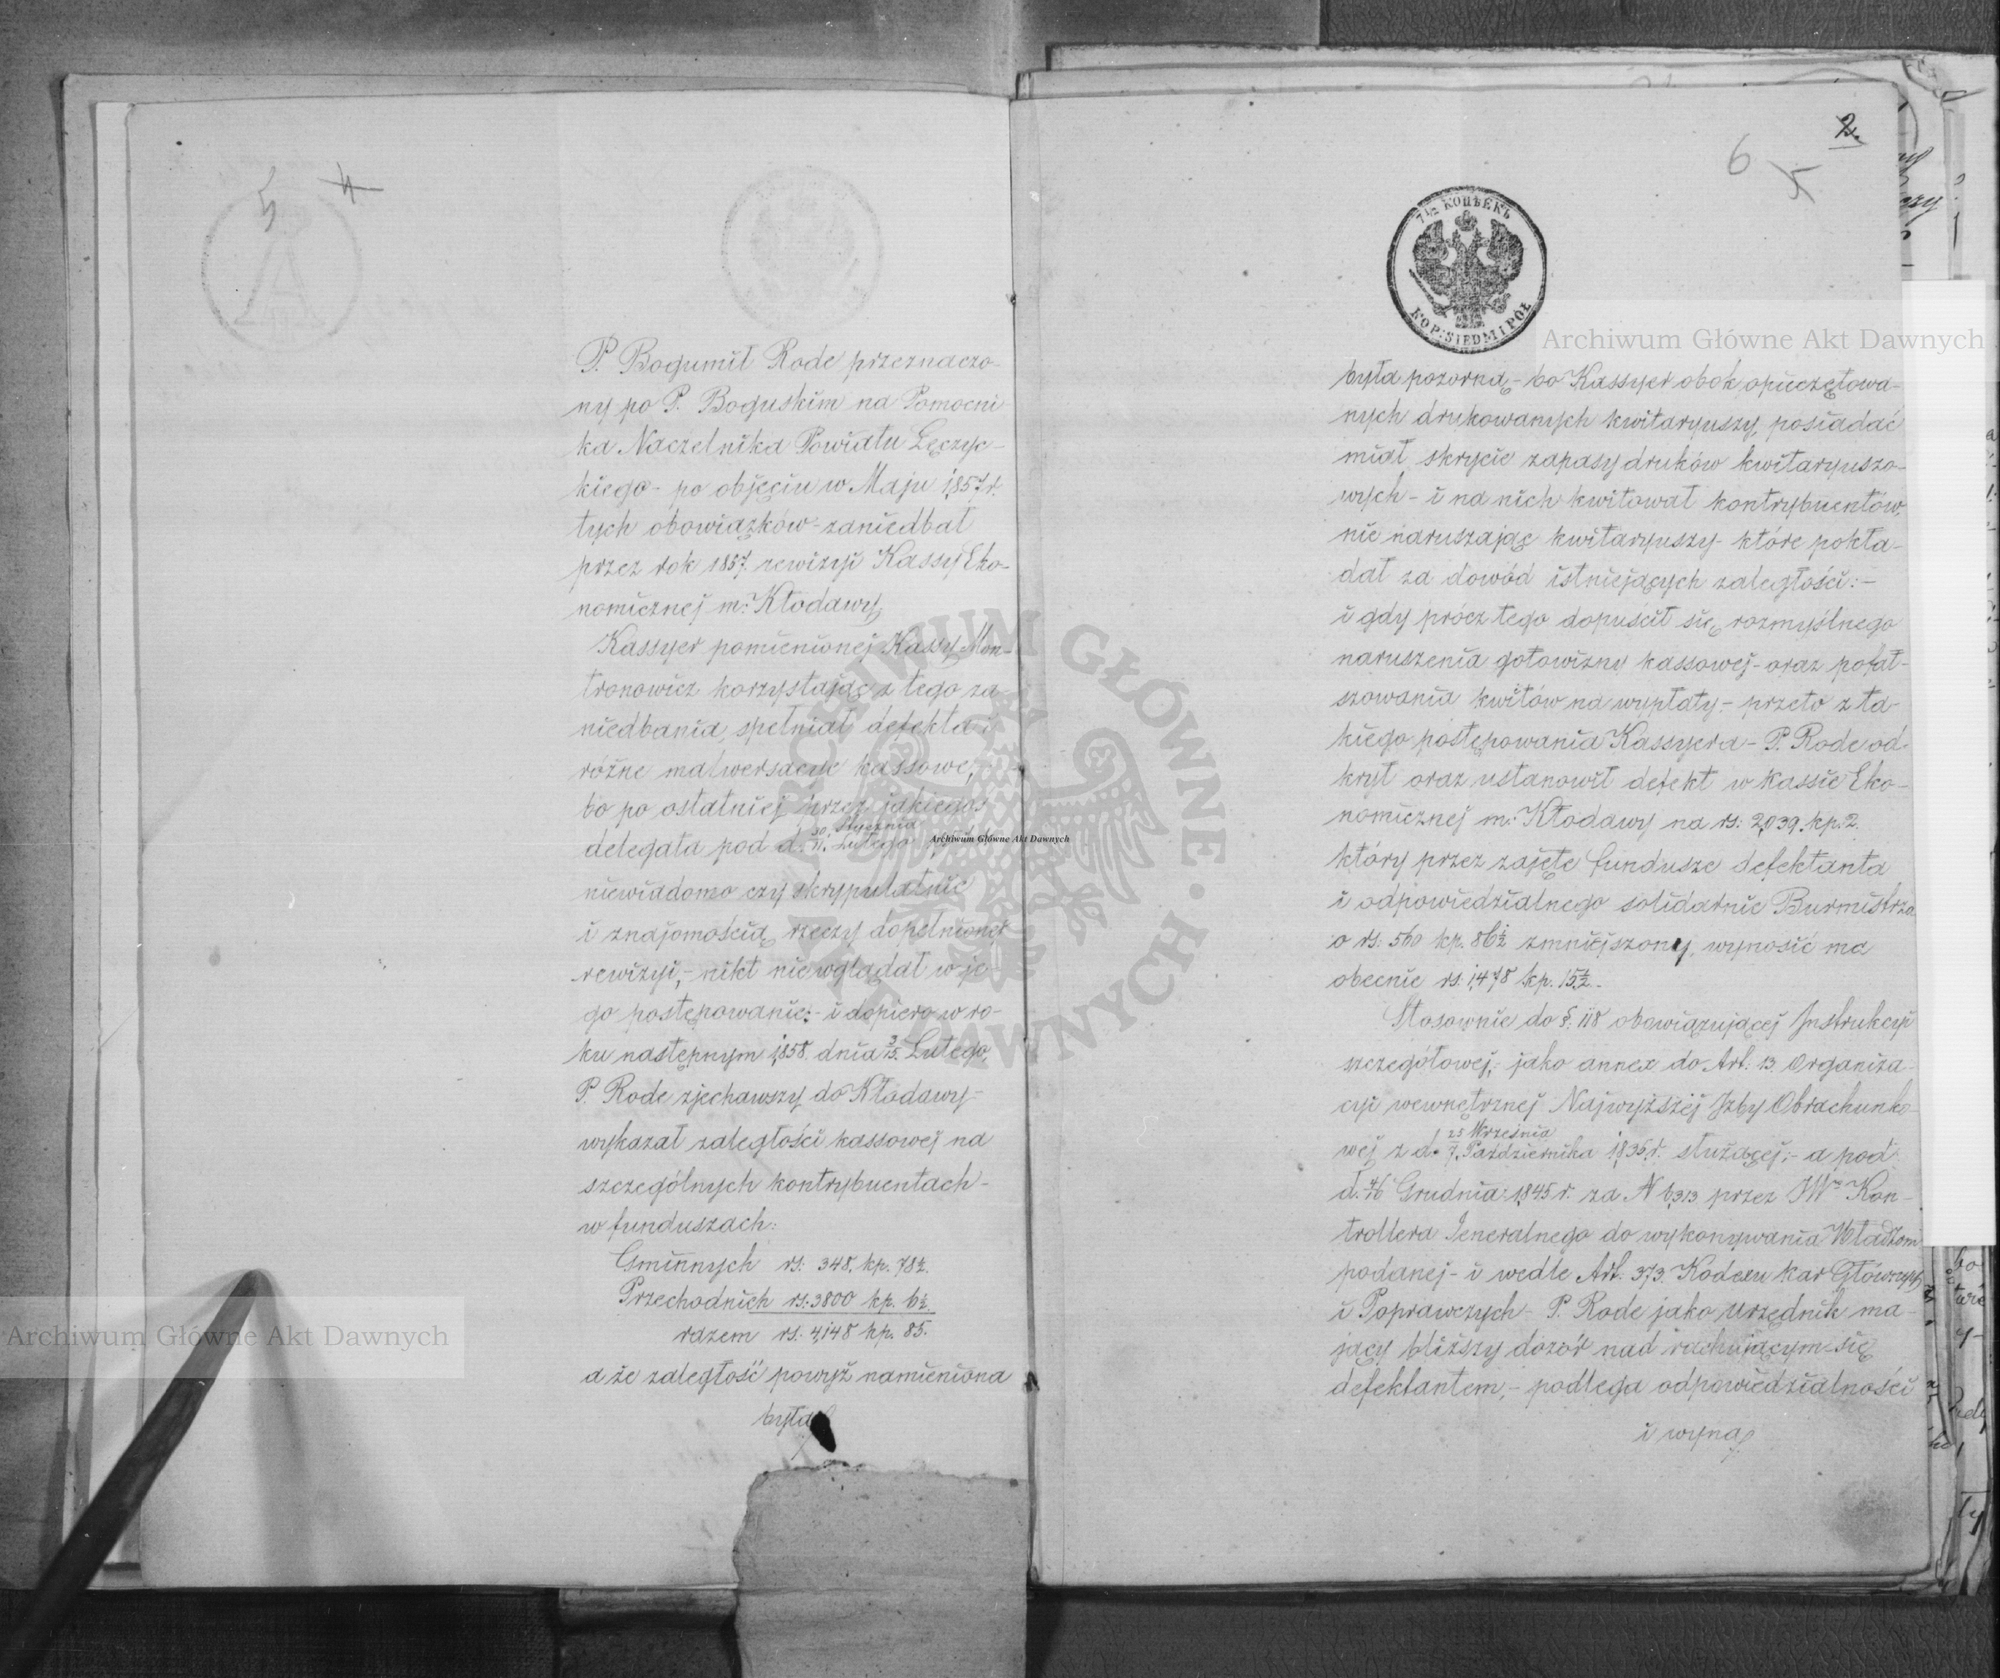 5 4
P. Bogumił Rode przeznaczo-
ny po P. Boguskim na Pomocni-
ka Naczelnika Powiatu Łęczyc-
kiego - po objęciu w Maju 1857 r.
tych obowiązków - zaniedbał
przez rok 1857. rewizyi Kassy Eko-
nomicznej m: Kłodawy.
Kassyer pomienionej Kassy Mon-
tronowicz korzystając z tego za
niedbania, spełniał defekta i
różne malwersacye kassowe,
bo po ostatniej przez jakiegoś
delegata pod d. 30. Stycznia / 11. Lutego
niewiadomo czy skrypulatnie
i znajomością rzeczy dopełnionej
rewizyi, - nikt nie wglądał w je
go postępowanie: - i dopiero w ro-
ku następnym 1858. dnia 3/15. Lutego,
P. Rode zjechawszy do Kłodawy -
wykazał zaległości kassowej na
szczególnych kontrybuentach -
w funduszach:
Gminnych rs: 348. kp. 78½.
Przechodnich rs: 3800 kp. 6½.
razem rs. 4,148 kp. 85.
a że zaległość powyż namieniona
była
2.
6 5
7½ КОПѢЕКЪ
KOP: SIEDM I PÓŁ
była pozorną - bo Kassyer obok opieczętowa-
nych drukowanych kwitaryuszy, posiadać
miał skrycie zapasy druków kwitaryuszo-
wych - i na nich kwitował kontrybuentów,
nie naruszając kwitaryuszy - które pokła-
dał za dowód istniejących zaległości: -
i gdy prócz tego dopuścił się rozmyślnego
naruszenia gotowizny kassowej - oraz pofał-
szowania kwitów na wypłaty. - przeto z ta-
kiego postępowania Kassyera - P. Rode od-
krył oraz ustanowił defekt w kassie Eko-
nomicznej m: Kłodawy na rs: 2,039. kp. 2.
który przez zajęte fundusze defektanta
i odpowiedzialnego solidarnie Burmistrza
o rs: 560 kp. 86½ zmniejszony, wynosić ma
obecnie rs. 1,478 kp. 15½. -
Stosownie do §. 118 obowiązującej Instrukcyi
szczegółowej, - jako annex do Art. 13. Organiza-
cyi wewnętrznej Najwyższej Izby Obrachunko-
wej z d. 25 Września / 7. Października 1835 r. służącej; - a pod
d. 4/16 Grudnia 1845 r. za N 6,313 przez JWo Kon-
trollera Jeneralnego do wykonywania Władzom
podanej - i wedle Art. 373. Kodexu kar Głównych
i Poprawczych - P. Rode jako Urzędnik ma-
jący bliższy dozór nad rachującym się
defektantem, - podlega odpowiedzialności
i wyna
Archiwum Główne Akt Dawnych
Archiwum Główne Akt Dawnych
Archiwum Główne Akt Dawnych
ARCHIWUM GŁÓWNE AKT DAWNYCH